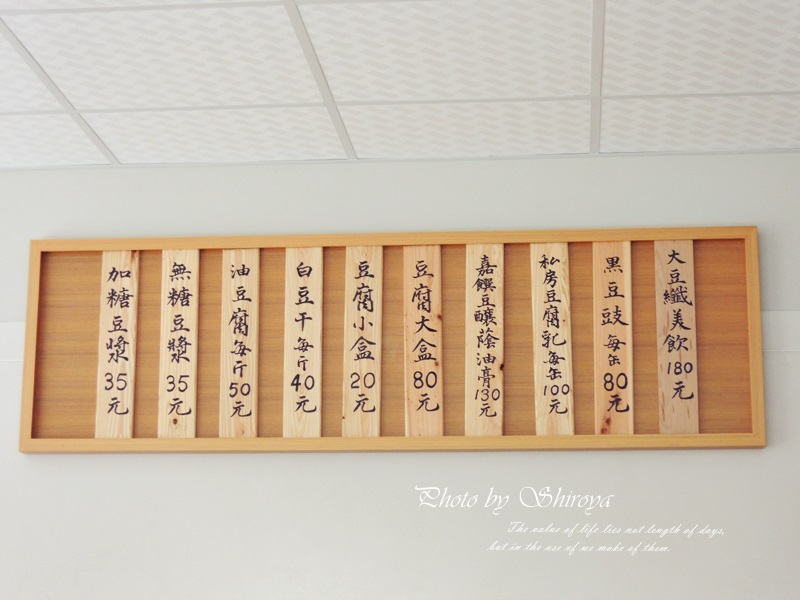 大豆纖美飲180元
黑豆豉每缶80元
私房豆腐乳每缶100元
嘉饌豆釀蔭油膏130元
豆腐大盒80元
豆腐小盒20元
白豆干每斤40元
油豆腐每斤50元
無糖豆漿35元
加糖豆漿35元
Photo by Shiroya
The value of life lies not length of days,
but in the use of we make of them.